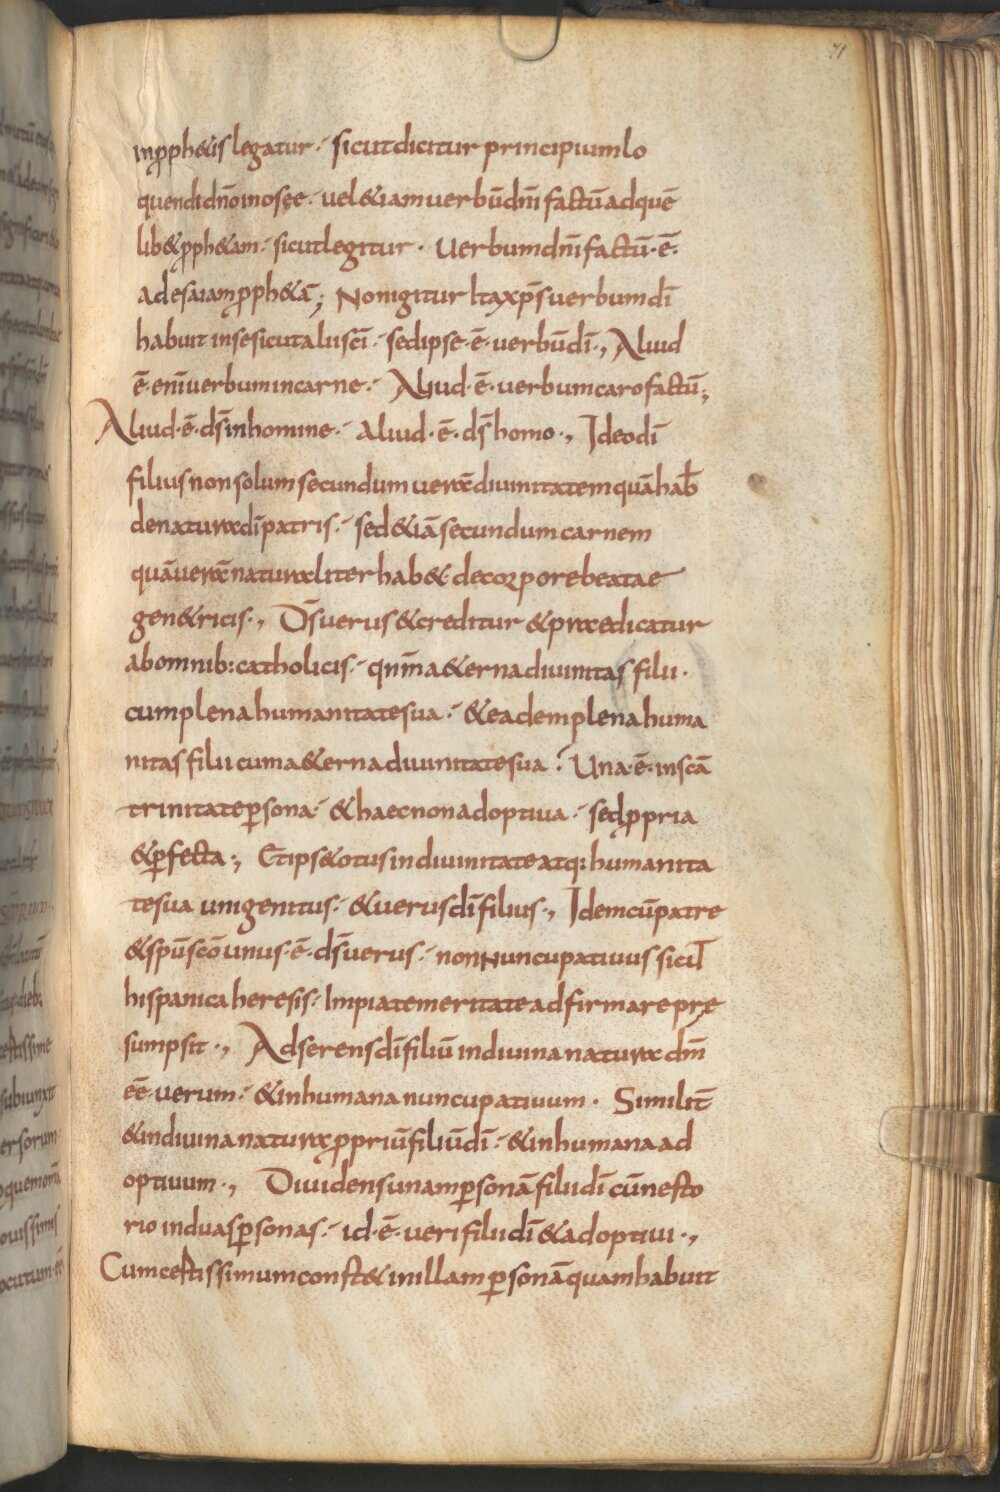 71
inpph&is legatur · sicut dicitur principium lo
quendi dnō in osee · vel &iam verbū dnī factū ad quē
lib& pph&am · sicut legitur · Verbum dnī factū · ē ·
ad esaiam pph&ā ; Non igitur ita xp̄s verbum dī
habuit in se sicut alii scī · sed ipse · ē · verbū dī ·, Aliud
ē · enī verbum in carne · Aliud · ē · verbum caro factū ;
Aliud · ē · ds̄ in homine · aliud · ē · ds̄ homo ·, Ideo dī
filius non solum secundum verā divinitatem quā hab̄
de natura dī patris · sed &iā secundum carnem
quā verā naturaliter hab& de corpore beatae
gen&ricis ·, Ds̄ verus & creditur & praedicatur
ab omnib: catholicis · qnm̄ a&erna divinitas filii ·
cum plena humanitate sua · & eadem plena huma
nitas filii cum a&erna divinitate sua · Una · ē · in scā
trinitate p̱ersona · & haec non adoptiva · sed ppria
& p̱fecta ·, Et ips& otus in divinitate atq: humanita
te sua unigenitus · & verus dī filius ·, Idem cū patre
& spū scō unus · ē · ds̄ verus · non nuncupativus sicut
hispanica heresis · Impia temeritate adfirmare pre
sumpsit ·, Adserens dī filiū in divina natura dm̄
eē · verum · & in humana nuncupativum · Similit̄
& in divina natura ppriū filiū dī · & in humana ad
optivum ·, Dividens unam p̱sonā filii dī cū nesto
rio in duas p̱sonas · id · ē · veri filii dī & adoptivi ·,
Cum certissimum const& in illam p̱sonā quam habuit